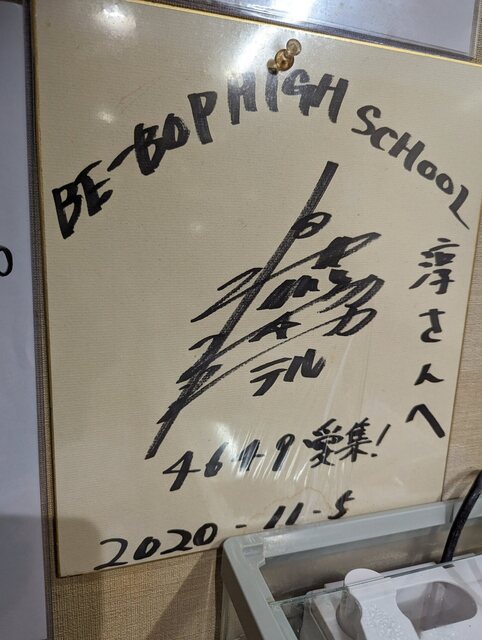 BE-BOP HIGH SCHOOL
淳さんへ
テル
4649 愛集!
2020-11-5